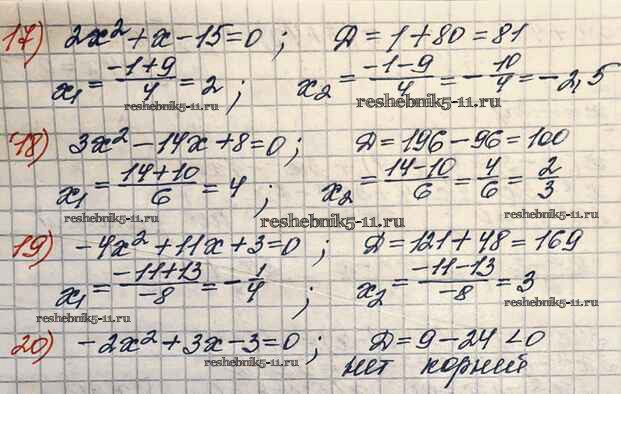 17) 2x² + x - 15 = 0 ; D = 1 + 80 = 81
x₁ = (-1+9)/4 = 2 ; x₂ = (-1-9)/4 = -10/4 = -2,5
reshebnik5-11.ru reshebnik5-11.ru
18) 3x² - 14x + 8 = 0 ; D = 196 - 96 = 100
x₁ = (14+10)/6 = 4 ; x₂ = (14-10)/6 = 4/6 = 2/3
reshebnik5-11.ru reshebnik5-11.ru reshebnik5-11.ru
19) -4x² + 11x + 3 = 0 ; D = 121 + 48 = 169
x₁ = (-11+13)/-8 = -1/4 ; x₂ = (-11-13)/-8 = 3
reshebnik5-11.ru reshebnik5-11.ru
20) -2x² + 3x - 3 = 0 ; D = 9 - 24 < 0
нет корний
reshebnik5-11.ru